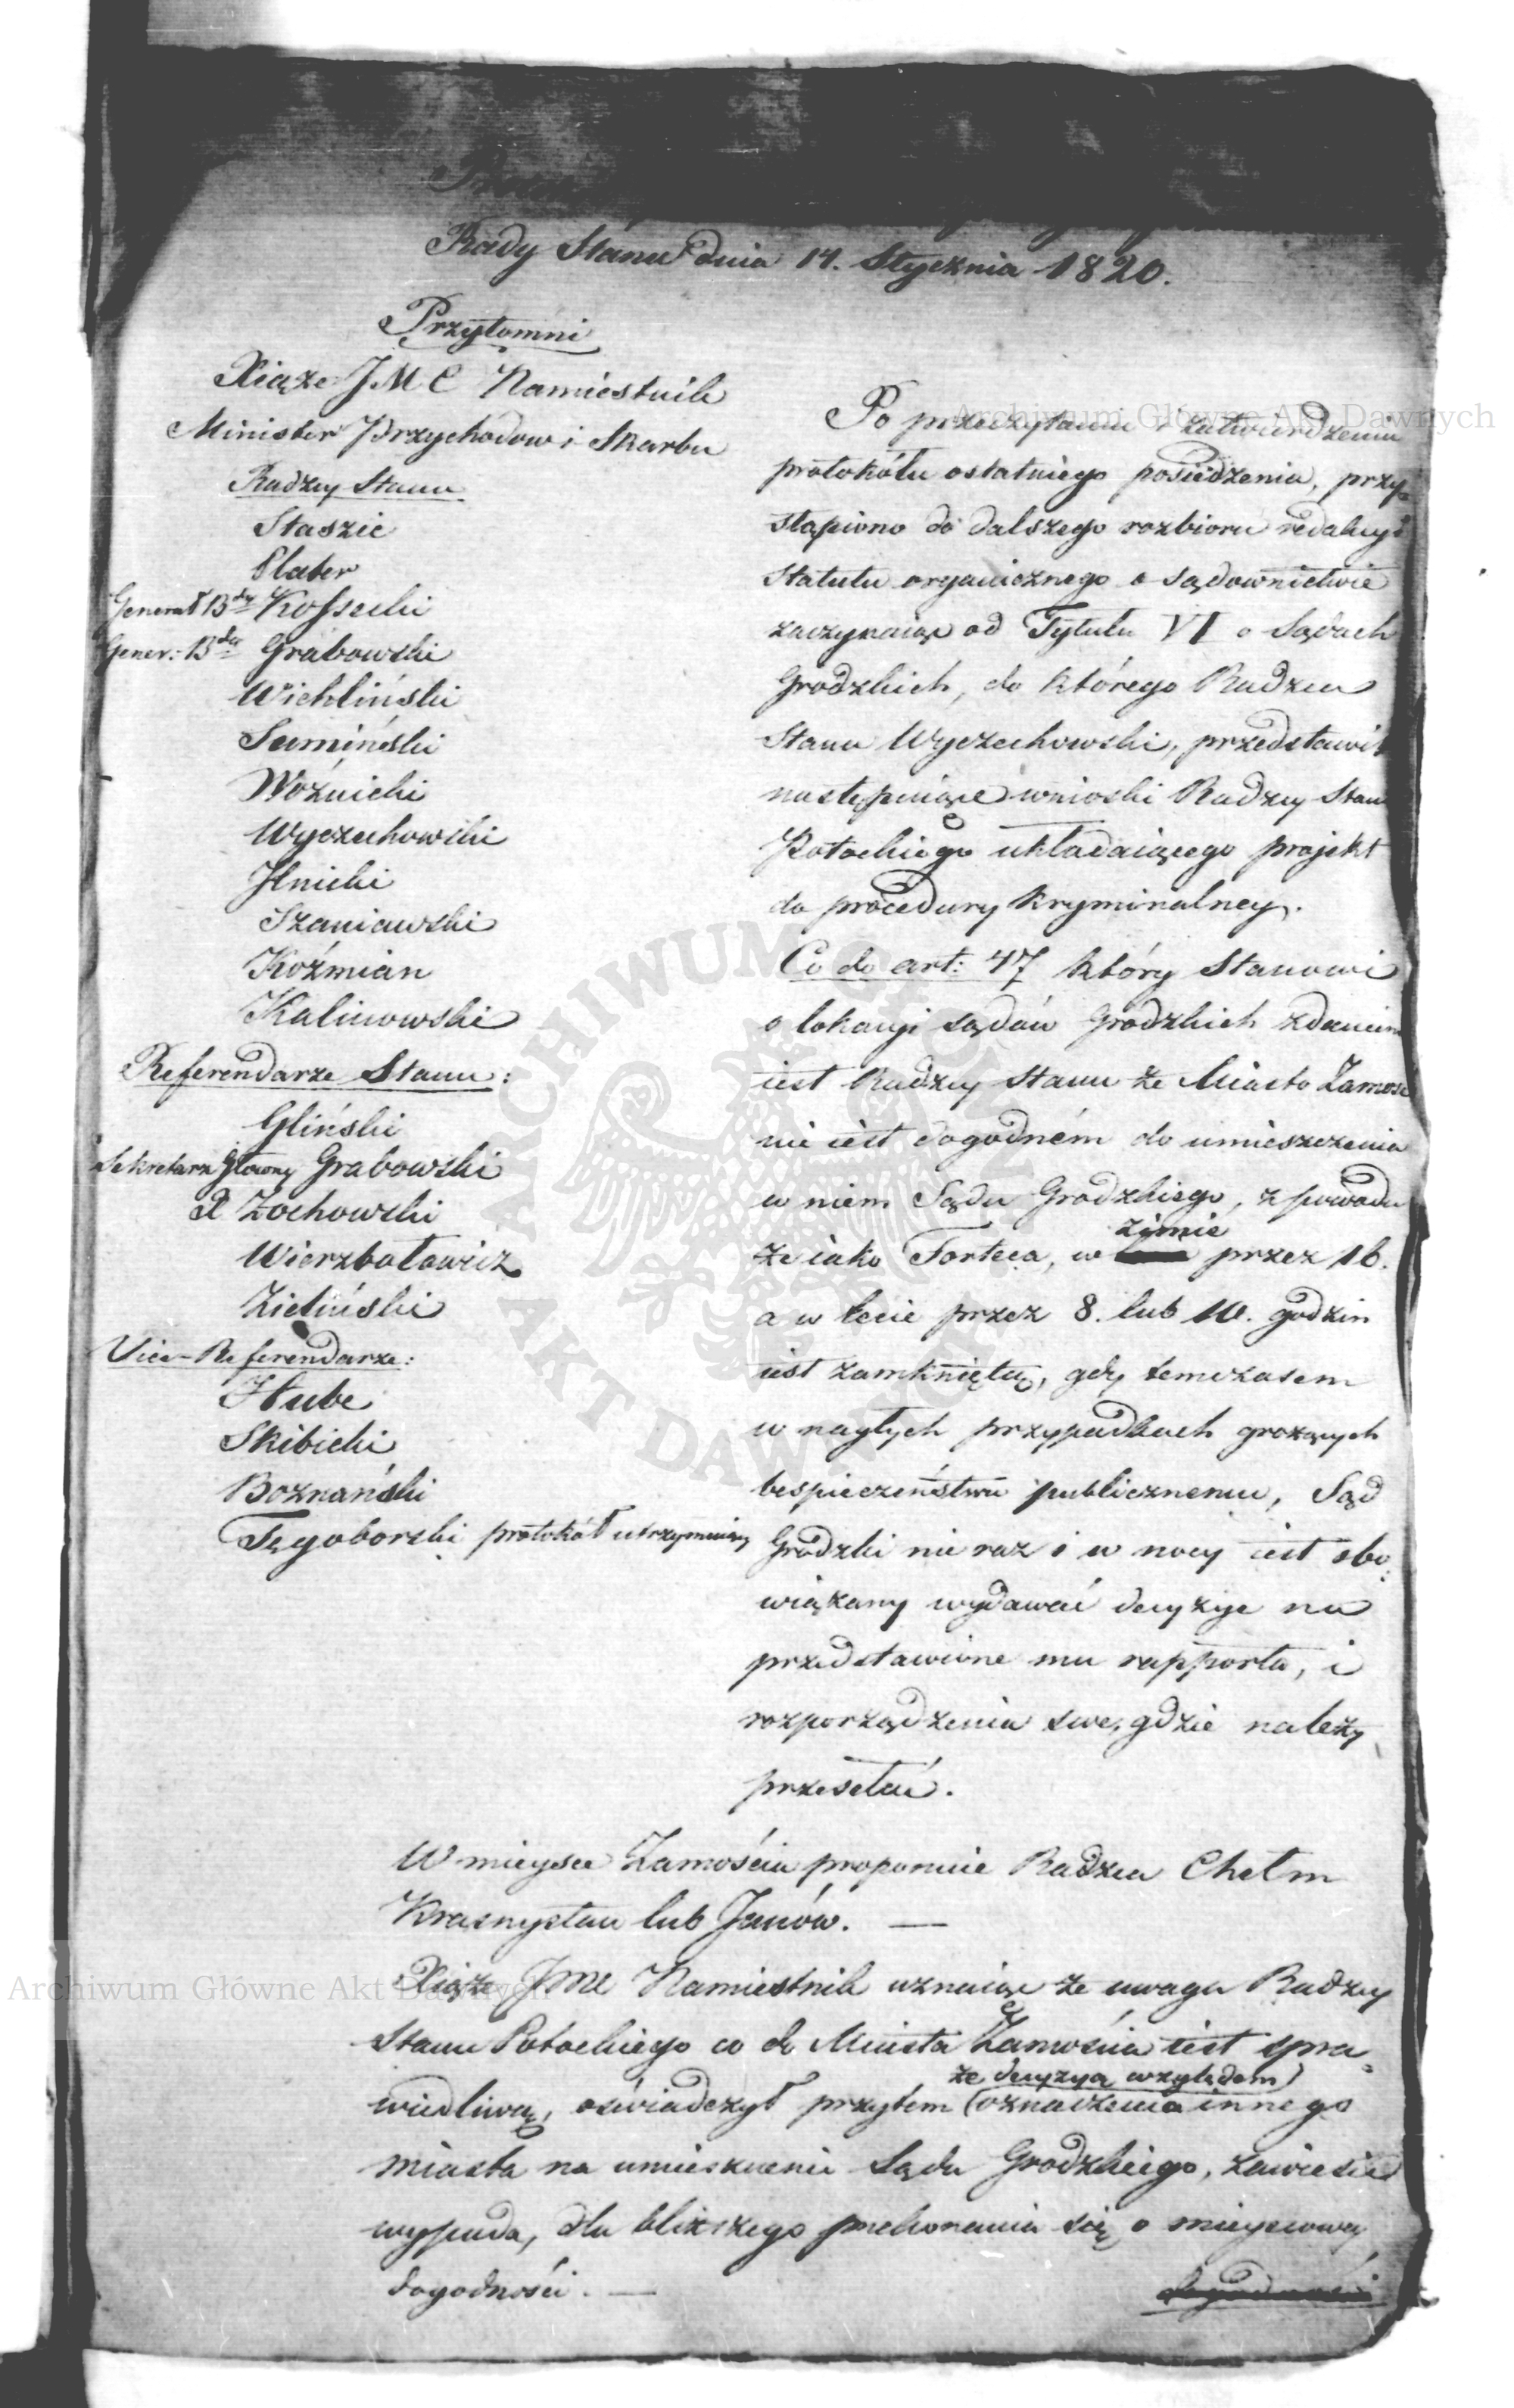 Rady Stanu dnia 14. Stycznia 1820.
Przytomni
Xiąże JMC Namiestnik
Minister Przychodow i Skarbu
Radzcy Stanu
Staszic
Plater
Generał Bdy Kossecki
Gener: Bdy Grabowski
Wichliński
Sumiński
Woźnicki
Wyczechowski
Ilnicki
Szaniawski
Koźmian
Kalinowski
Referendarze Stanu:
Gliński
Sekretarz Główny Grabowski
X Żochowski
Wierzbołowicz
Zieliński
Vice-Referendarze:
Hube
Skibicki
Boznański
Tęgoborski protokół utrzymuiący
Po przeczytaniu i zatwierdzeniu
protokółu ostatniego posiedzenia, przy-
stąpiono do dalszego rozbioru redakcyi
Statutu organicznego o sądownictwie
zaczynaiąc od Tytułu VI o Sądach
Grodzkich, do którego Radzca
Stanu Wyczechowski, przedstawił
następuiące wnioski Radzcy Stanu
Potockiego układaiącego projekt
do procedury kryminalney.
Co do art: 47 który Stanowi
o lokacyi sądów Grodzkich zdaniem
iest Radzcy Stanu że Miasto Zamosc
nie iest dogodném do umieszczenia
w niem Sądu Grodzkiego, z powodu
zimie
że iako Forteca, w przez 16.
a w lecie przez 8. lub 10. godzin
iest zamkniętą, gdy temczasem
w nagłych przypadkach grożących
bespieczeństwu publicznemu, Sąd
Grodzki nie raz i w nocy iest obo-
wiązany wydawać decyzye na
przedstawione mu rapporta, i
rozporządzenia swe, gdzie należy
przesełać.
W mieysce Zamościa proponuie Radzca Chełm
Krasnystaw lub Janów. —
Xiąże JMC Namiestnik uznaiąc że uwaga Radzcy
Stanu Potockiego co do Miasta Zamościa iest spra-
że decyzya względem
wiedliwą, oświadczył przytem (oznaczenia innego
miasta na umieszczenie Sądu Grodzkiego, zawiesić
wypada, dla bliższego przekonania się o mieyscowey
dogodności. —
dogodności
Archiwum Główne Akt Dawnych
Archiwum Główne Akt Dawnych
ARCHIWUM GŁÓWNE AKT DAWNYCH